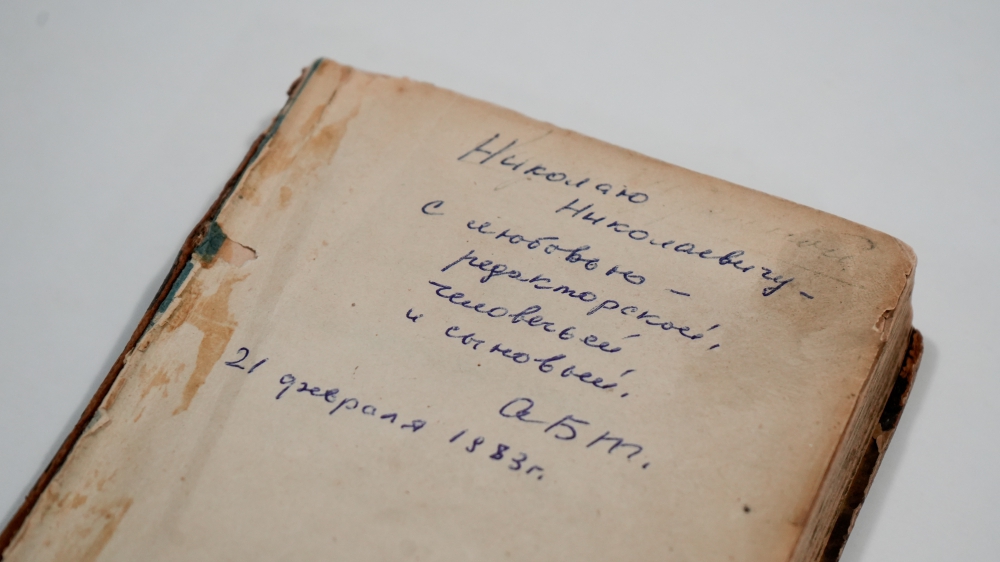 Николаю
Николаевичу -
с любовью -
редакторской,
человечьей
и сыновьей.
АБТ.
21 февраля 1983г.